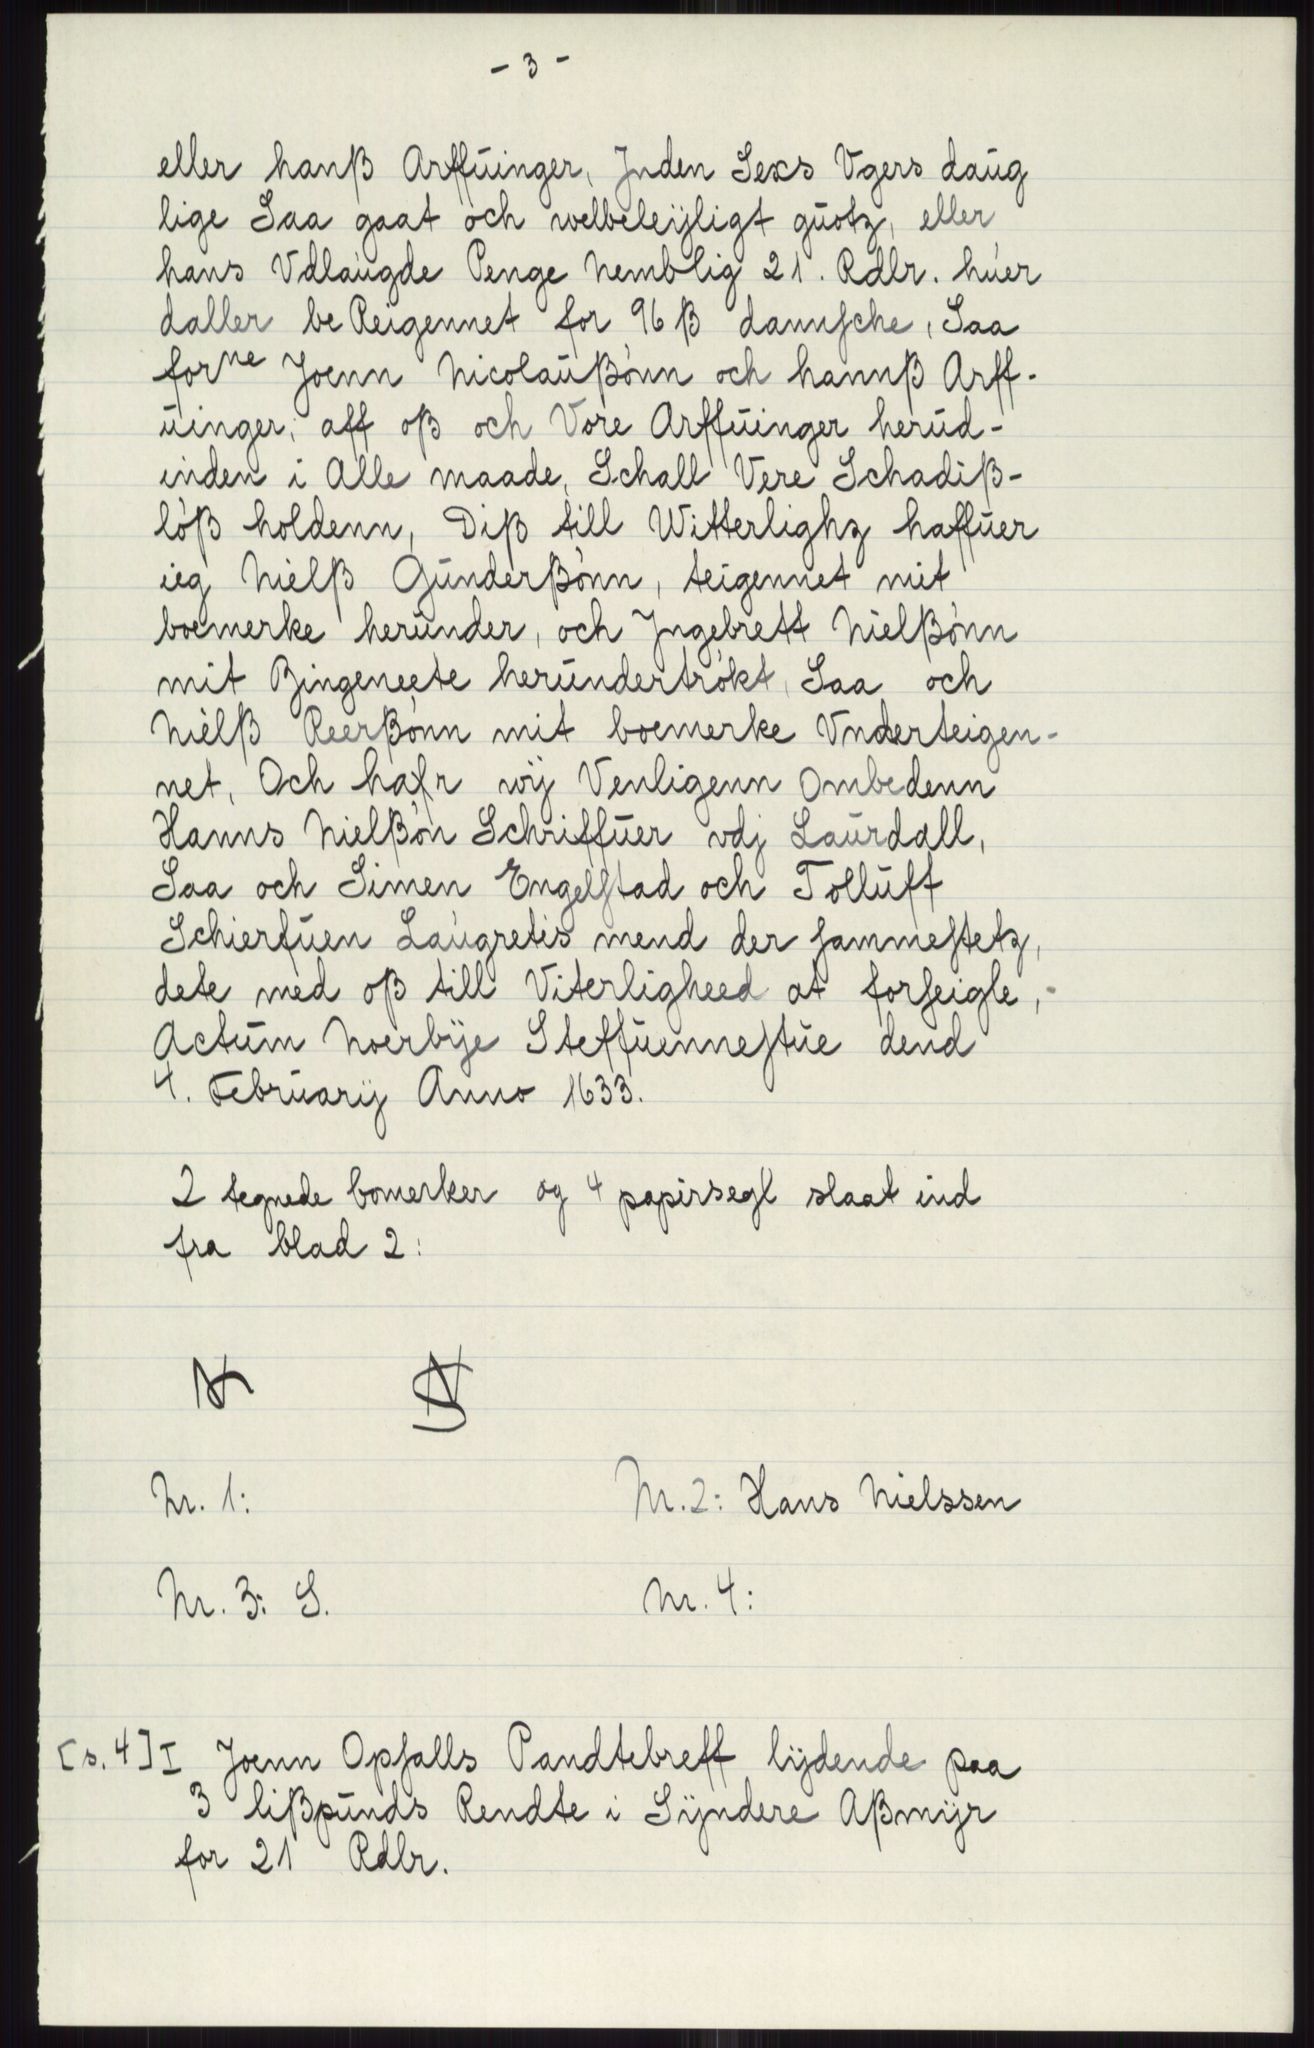 - 3 -
eller hanß Arffuinger, Jnden Sexs Vgers daug
lige Saa gaat och welbeleÿligt guotz, eller
hans Vdlaugde Penge Nemblig 21. Rdlr. huer
daller be Reigennet for 96 ß dannsche, Saa
forne Joenn Nicolaußønn och hannß Arff-
uinger, aff oß och Vore Arffuinger herud-
inden i Alle maade, Schall Vere Schadiß-
løß holdenn, Diß till Witterlighz haffuer
ieg Nielß Gunderßønn, teigennet mit
boemerke herunder, och Jngebrett Nielßønn
mit Zingeneete herundertrøkt, Saa och
Nielß Reerßønn mit boemerke Vnderteigen-
net, Och hafr wÿ Venligenn Ombedenn
Hanns Nielßøn Schriffuer vdj Laurdall,
Saa och Simen Engelstad och Tolluff
Schierfuen Laugretis mend der sammestetz,
dete med oß till Viterligheed at forseigle,-
Actum Noerbÿe Steffuennestue dend
4. Februarÿ Anno 1633.
2 tegnede bomerker og 4 papirsegl slaat ind
fra blad 2:
Nr. 1:
Nr. 2: Hans Nielssen
Nr. 3: S.
Nr. 4:
[s. 4] I Joenn Opsalls Pandtebreff lÿdende paa
3 lißpunds Rendte i Sÿndere Aßmÿr
for 21 Rdlr.